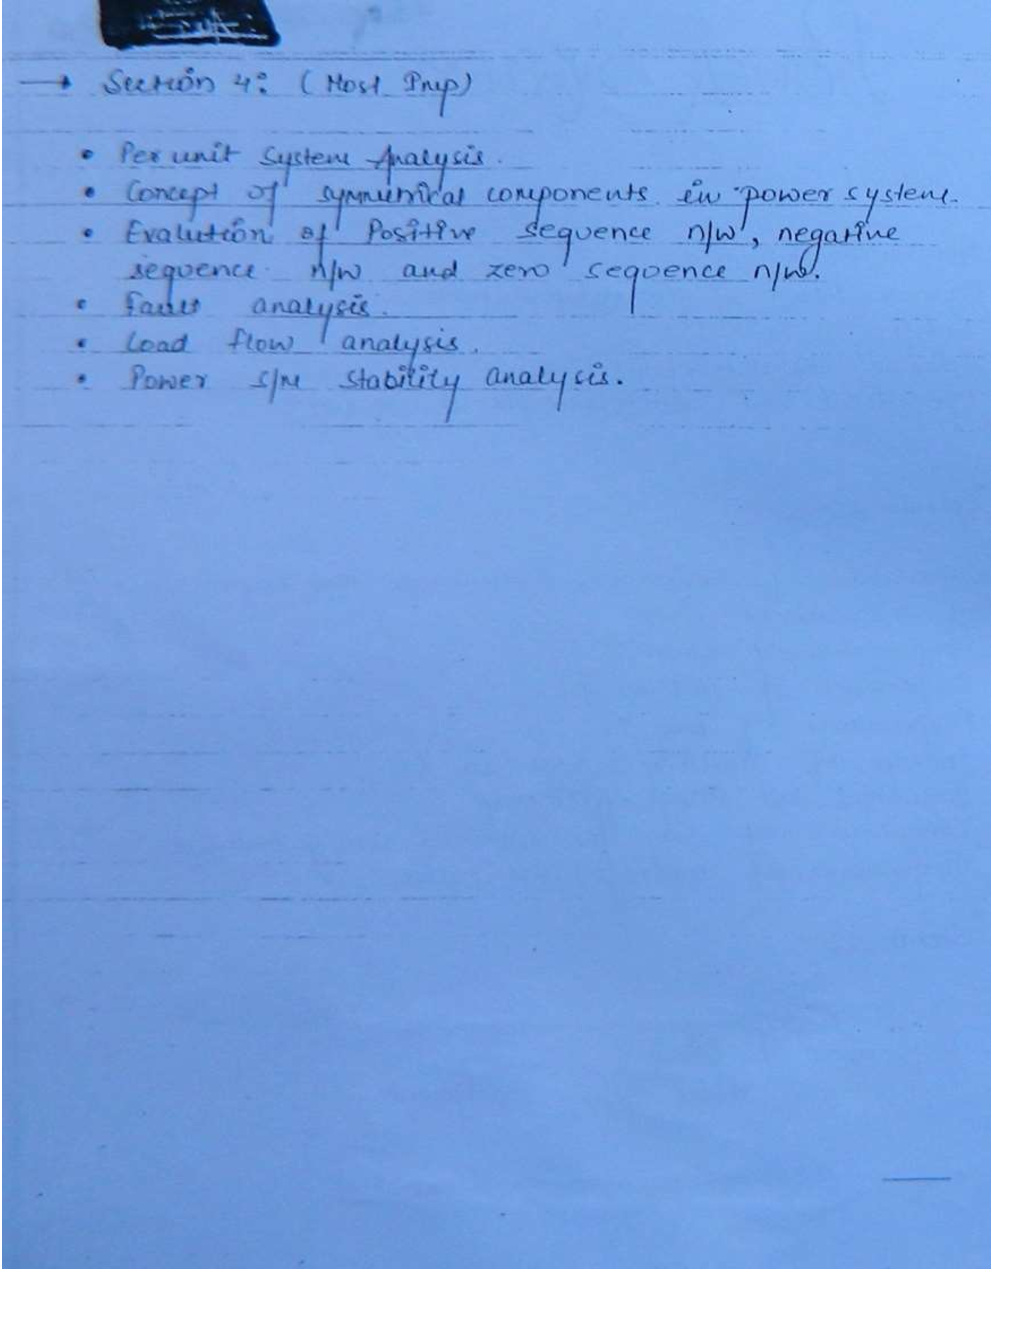 → Section 4: (Most Imp)
• Per unit System Analysis.
• Concept of symmetrical components in power system.
• Evalution of Positive sequence n/w, negative
sequence n/w and zero sequence n/w.
• Fault analysis.
• Load flow analysis.
• Power s/m stability analysis.